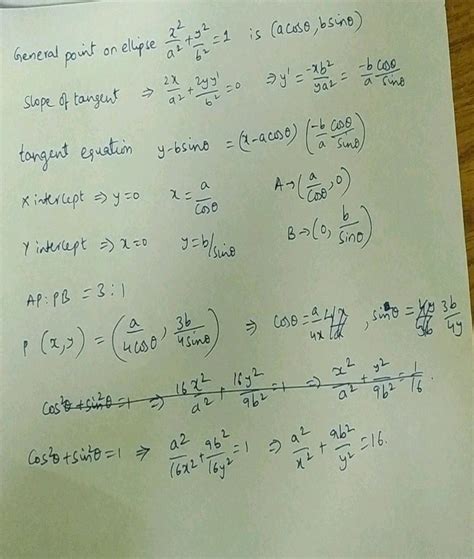 General point on ellipse x²/a² + y²/b² = 1 is (a cosθ, b sinθ)
Slope of tangent ⇒ 2x/a² + 2yy'/b² = 0 ⇒ y' = -xb²/ya² = -b/a cosθ/sinθ
tangent equation y-bsinθ = (x-acosθ) (-b/a cosθ/sinθ)
X intercept ⇒ y=0 x = a/cosθ A→(a/cosθ, 0)
Y intercept ⇒ x=0 y = b/sinθ B→(0, b/sinθ)
AP:PB = 3:1
P(x,y) = (a/4cosθ, 3b/4sinθ) ⇒ cosθ = a/4x , sinθ = 3b/4y
cos²θ+sin²θ=1 ⇒ 16x²/a² + 16y²/9b² = 1 ⇒ x²/a² + y²/9b² = 1/16
cos²θ+sin²θ=1 ⇒ a²/16x² + 9b²/16y² = 1 ⇒ a²/x² + 9b²/y² = 16.